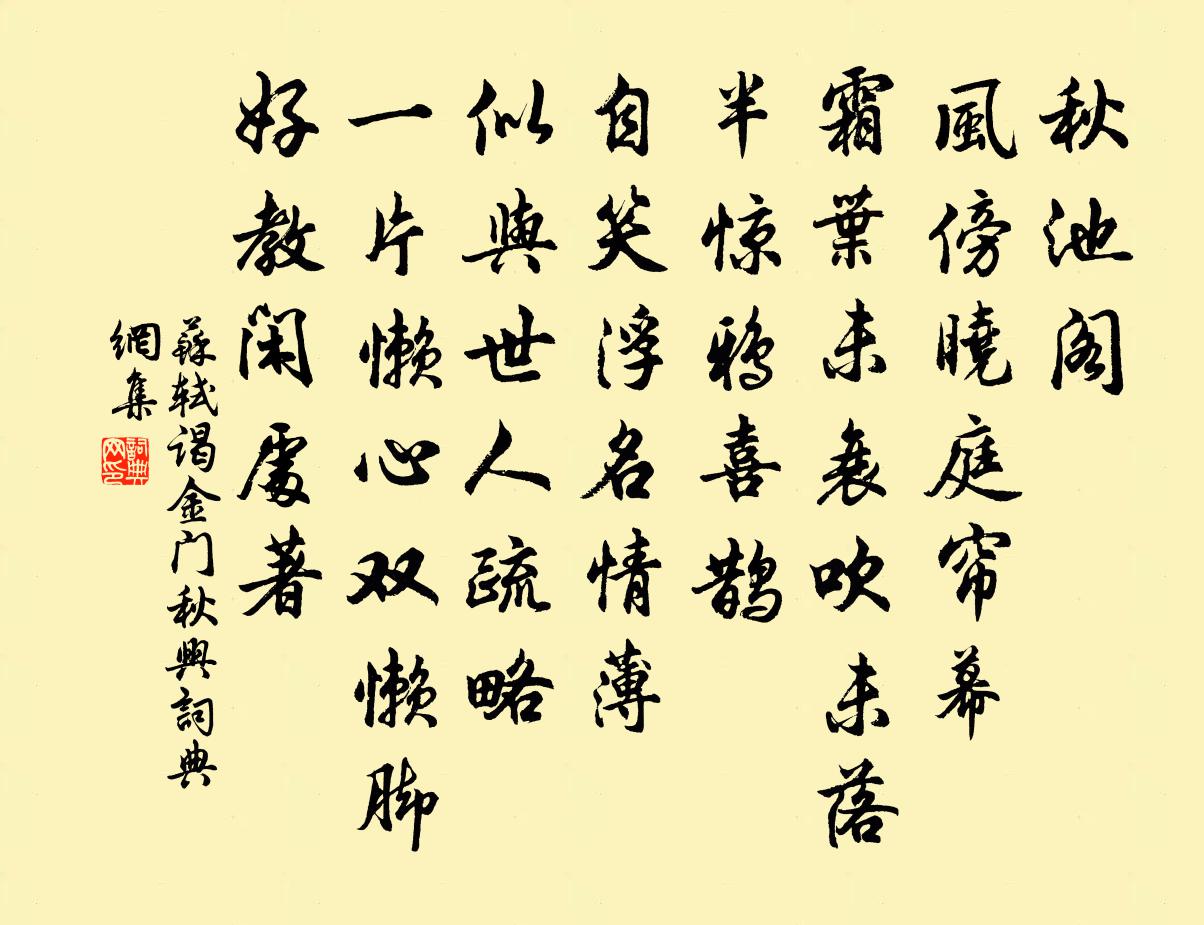 秋池阁
風傍曉庭帘幕
霜葉未衰吹未落
半惊鸦喜鹊
自笑浮名情薄
似與世人疏略
一片懒心双懒脚
好教闲處著
蘇轼谒金门秋興詞典
網集
詞典網印